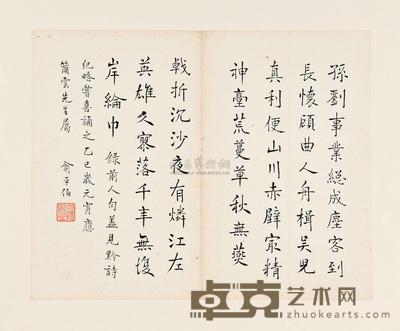 孫劉事業總成塵客到
長懷顧曲人舟楫吴兒
真利便山川赤壁冣精
神臺荒蔓草秋無燕
戟折沉沙夜有燐江左
英雄久寥落千年無復
岸綸巾 録前人句蓋見黔詩
紀略嘗喜誦之乙巳歲元宵應
雲先生屬 俞平伯
卓克艺术网
www.zhuokearts.com